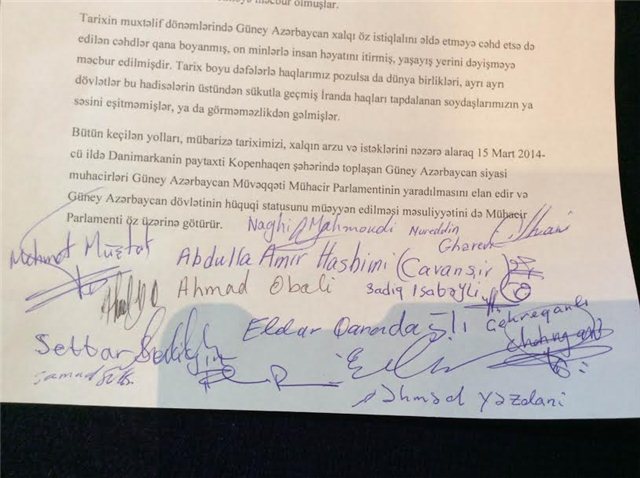 məcbur olmuşlar.
Tarixin muxtəlif dönəmlərində Güney Azərbaycan xalqı öz istiqlalını əldə etməyə cəhd etsə də
edilən cəhdlər qana boyanmış, on minlərlə insan həyatını itirmiş, yaşayış yerini dəyişməyə
məcbur edilmişdir. Tarix boyu dəfələrlə haqlarımız pozulsa da dünya birlikləri, ayrı ayrı
dövlətlər bu hadisələrin üstündən sükutla geçmiş İranda haqları tapdalanan soydaşlarımızın ya
səsini eşitməmişlər, ya da görməməzlikdən gəlmişlər.
Bütün keçilən yolları, mübarizə tariximizi, xalqın arzu və istəklərini nəzərə alaraq 15 Mart 2014-
cü ildə Danimarkanin paytaxti Kopenhaqen şəhərində toplaşan Güney Azərbaycan siyasi
muhacirləri Güney Azərbaycan Müvəqqəti Mühacir Parlamentinin yaradılmasını elan edir və
Güney Azərbaycan dövlətinin hüquqi statusunu müəyyən edilməsi məsuliyyətini də Mühacir
Parlamenti öz üzərinə götürür.
Naghi Mahmoudi Nureddin
Mehmet Müştat
Abdulla Amir Hashimi (Cavanşir)
Ahmad Obali Sadiq Isabəyli
Eldar Qaradağlı Çehreqanlı
Settar
Əhməd Yəzdani